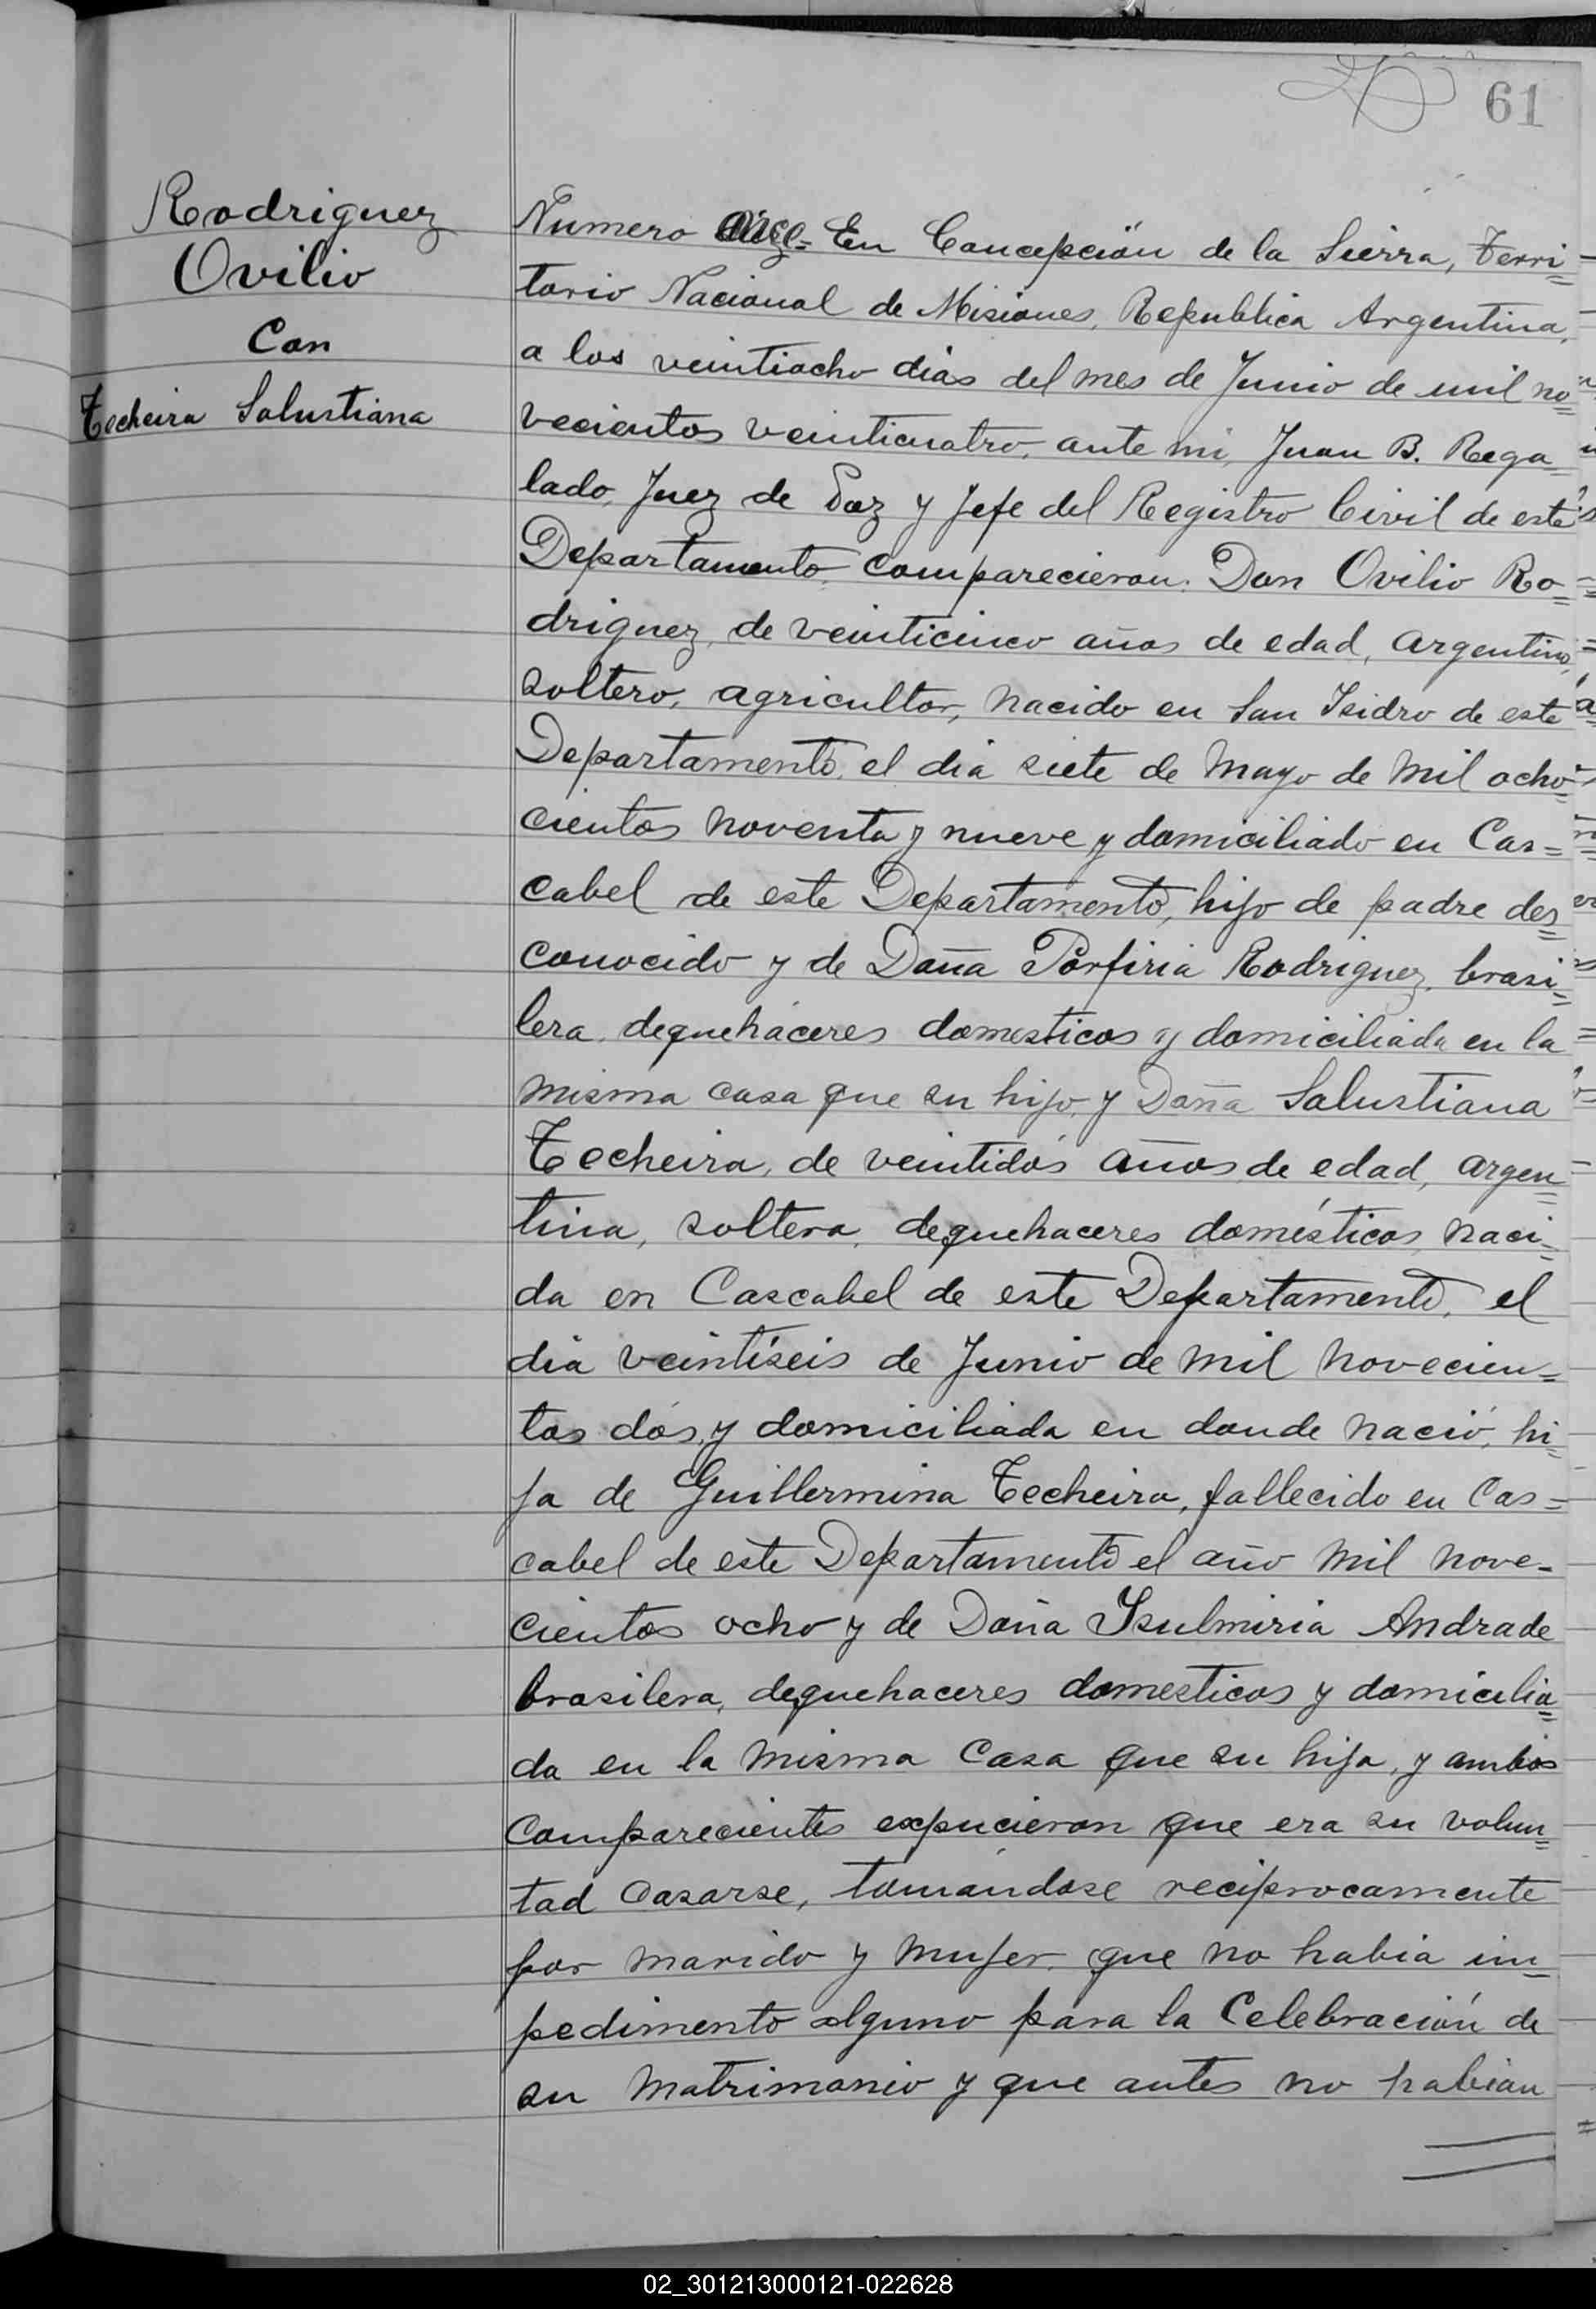 61
Rodriguez
Ovilio
Con
Techeira Salustiana
Numero once= En Concepción de la Sierra, Terri=
torio Nacional de Misiones, Republica Argentina,
a los veintiocho dias del mes de Junio de mil no=
vecientos veinticuatro, ante mi, Juan B. Rega=
lado, Juez de Paz y Jefe del Registro Civil de este
Departamento, comparecieron: Don Ovilio Ro=
driguez, de veinticinco años de edad, argentino,
soltero, agricultor, nacido en San Isidro de este
Departamento, el dia siete de Mayo de mil ocho=
cientos noventa y nueve y domiciliado en Cas=
cabel de este Departamento, hijo de padre des=
conocido y de Doña Porfiria Rodriguez, brasi=
lera, dequehaceres domesticos y domiciliada en la
misma casa que su hijo, y Doña Salustiana
Techeira, de veintidós años de edad, argen=
tina, soltera, dequehaceres domésticos, naci=
da en Cascabel de este Departamento, el
dia veintiseis de Junio de mil novecien=
tos dós, y domiciliada en donde nació, hi=
ja de Guillermina Techeira, fallecido en Cas=
cabel de este Departamento el año mil nove-
cientos ocho y de Doña Isulmiria Andrade
brasilera, dequehaceres domesticos y domicilia=
da en la misma casa que su hija, y ambos
comparecientes expucieron que era su volun=
tad casarse, tomándose reciprocamente
por marido y mujer, que no habia im=
pedimento alguno para la celebración de
su matrimonio y que antes no habian
02_301213000121-022628